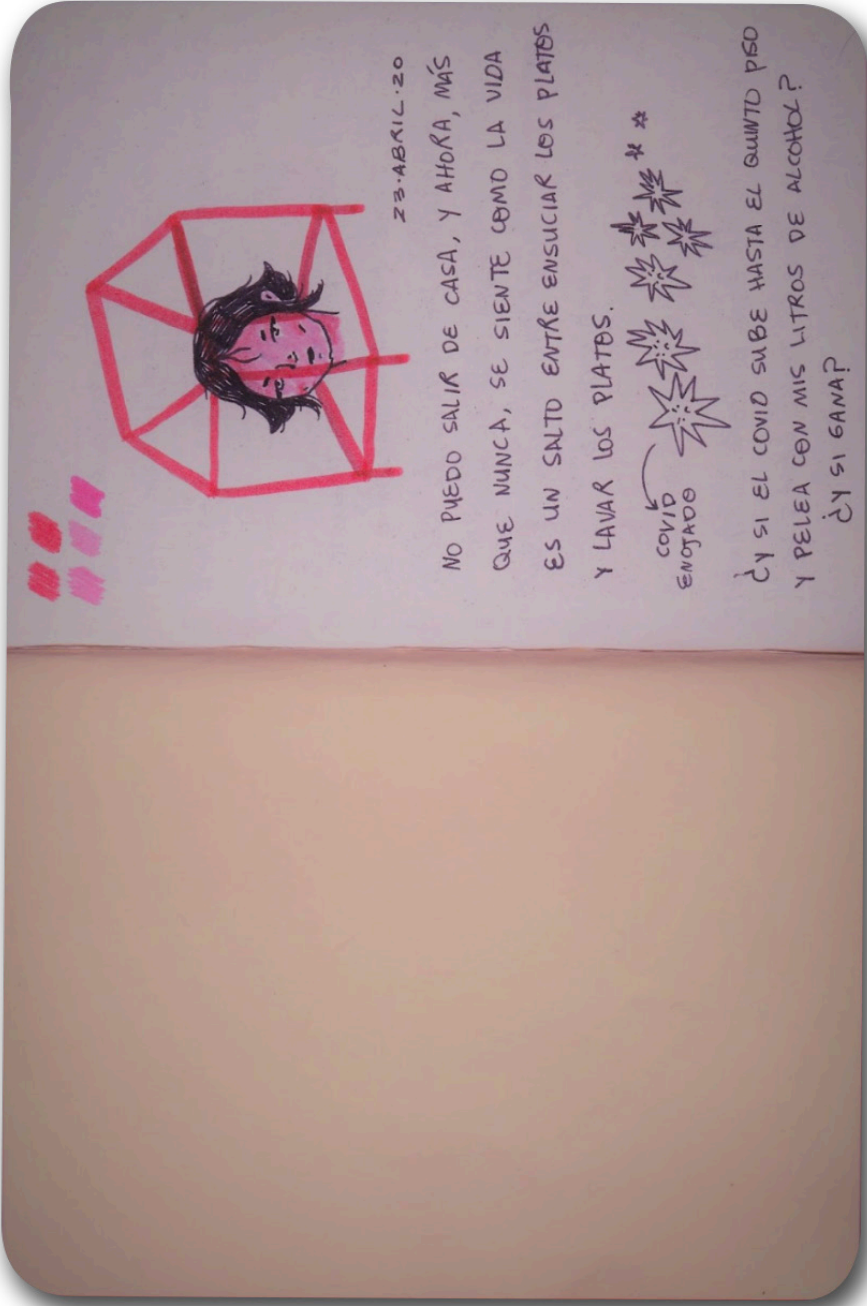 23·ABRIL·20
NO PUEDO SALIR DE CASA, Y AHORA, MÁS
QUE NUNCA, SE SIENTE COMO LA VIDA
ES UN SALTO ENTRE ENSUCIAR LOS PLATOS
Y LAVAR LOS PLATOS.
COVID
ENOJADO
¿Y SI EL COVID SUBE HASTA EL QUINTO PISO
Y PELEA CON MIS LITROS DE ALCOHOL?
¿Y SI GANA?